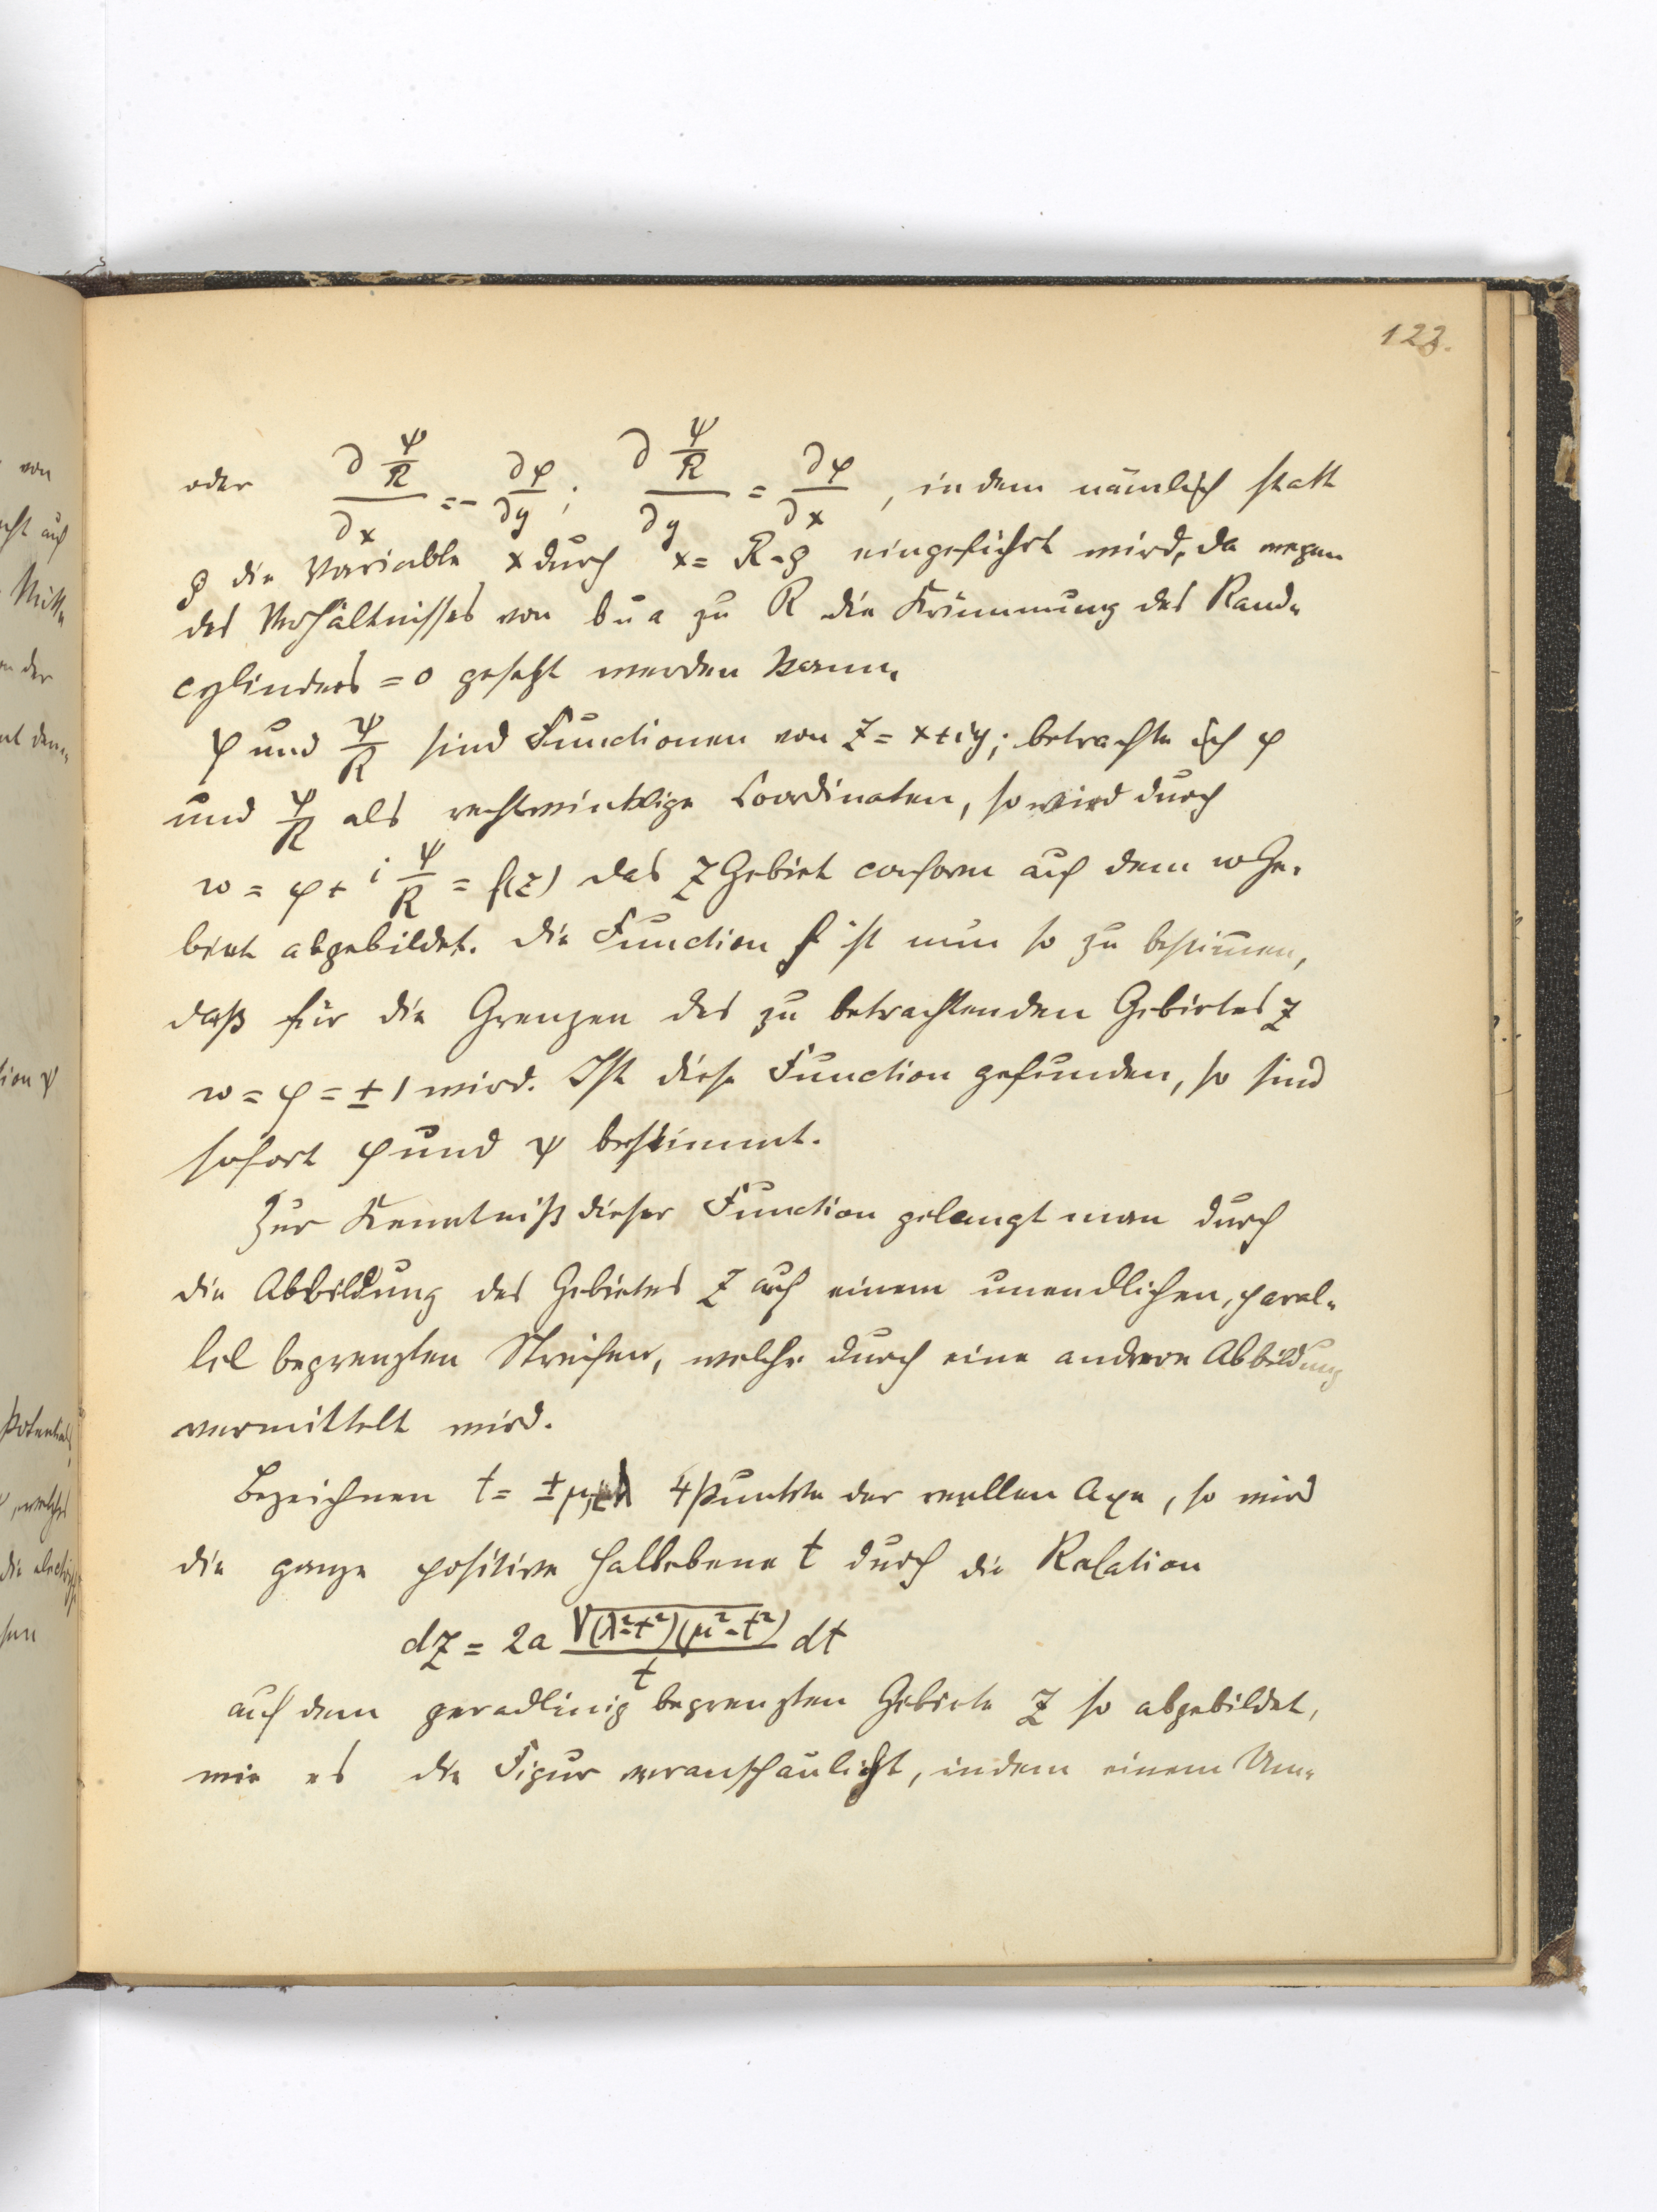 122.
oder ∂ψ/R / ∂x = - ∂φ/∂y ; ∂ψ/R / ∂y = ∂φ/∂x , indem nämlich statt
ρ die Variable x durch x = R-ρ eingeführt wird, da wegen
des Verhältnisses von b u a zu R die Krümmung des Rand-
cylinders = 0 gesetzt werden kann.
φ und ψ/R sind Functionen von z = x+iy; betrachte ich φ
und ψ/R als rechtwinklige Coordinaten, so wird durch
w = φ + i ψ/R = f(z) das z Gebiet conform auf dem w Ge-
biete abgebildet. Die Function f ist nun so zu bestim̄en,
daß für die Grenzen des zu betrachtenden Gebietes z
w = φ = ± 1 wird. Ist diese Function gefunden, so sind
sofort φ und ψ bestimmt.
Zur Kenntniß dieser Function gelangt man durch
die Abbildung des Gebietes z auf einem unendlichen, paral-
lel begrenzten Streifen, welche durch eine andere Abbildung
vermittelt wird.
Bezeichnen t = ±μ, ±λ 4 Punkte der reellen Axe, so wird
die ganze positive Halbebene t durch die Relation
dz = 2a √(λ²-t²)(μ²-t²) / t dt
auf dem geradlinig begrenzten Gebiete z so abgebildet,
wie es die Figur veranschaulicht, indem einem Um-
von
auf
Mitte
der
ψ